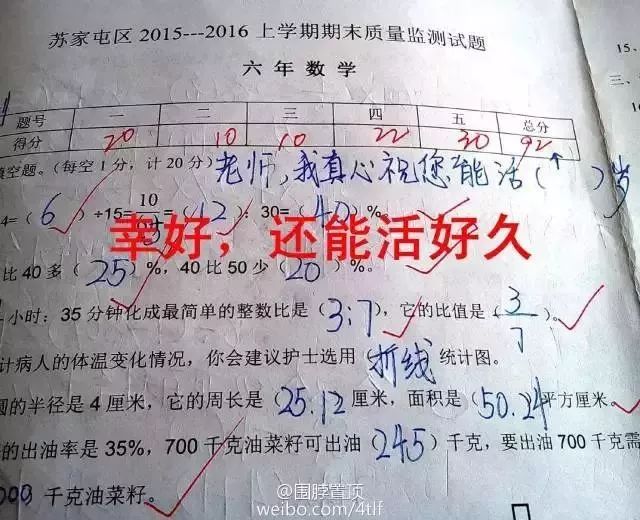 苏家屯区 2015---2016 上学期期末质量监测试题
15、
六 年 数 学
三、
题号 一 二 三 四 五 总分
得分 20 10 10 22 30 92
填空题。(每空1分，计20分) 老师，我真心祝您能活( )岁
4=( 6 )÷15=10/ =( 12 ):30=( 40 )%。
幸好，还能活好久
比 40 多( 25 )%, 40 比 50 少( 20 )%。
小时：35 分钟化成最简单的整数比是( 3:7 ), 它的比值是( 3/7 )。
计病人的体温变化情况，你会建议护士选用( 折线 统计图。
圆的半径是 4 厘米，它的周长是( 25.12 )厘米，面积是( 50.24 )平方厘米。
的出油率是 35%, 700 千克油菜籽可出油( 245 )千克，要出油 700 千克需
000 千克油菜籽。
@围脖置顶
weibo.com/4tlf